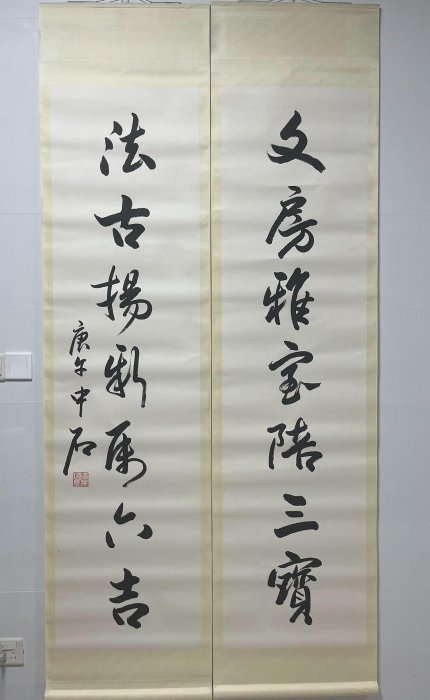 文房雅室陪三寶
法古揚新屬六吉
庚午中石